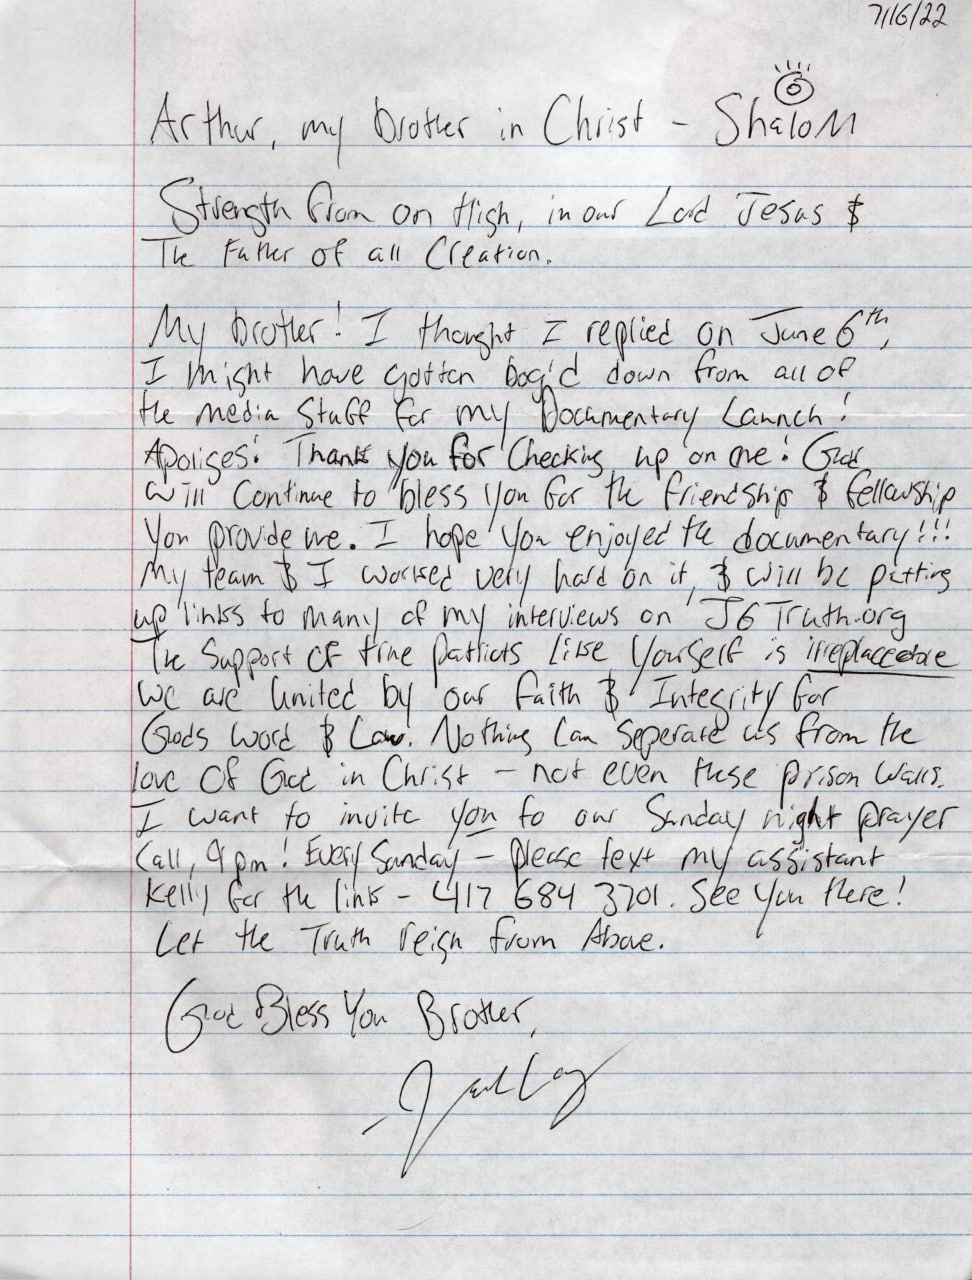 7/16/22
Arthur, my brother in Christ - Shalom
Strength from on High, in our Lord Jesus &
The Father of all Creation.
My brother! I thought I replied on June 6th,
I might have gotten bog'd down from all of
the media stuff for my Documentary Launch!
Apoliges! Thank you for checking up on me! God
will continue to bless you for the friendship & fellowship
you provide me. I hope you enjoyed the documentary!!!
My team & I worked very hard on it, & will be putting
up links to many of my interviews on J6Truth.org
The support of true patriots like yourself is irreplaceable
We are united by our Faith & Integrity for
Gods word & Law. Nothing can seperate us from the
love of God in Christ - not even these prison walls.
I want to invite you to our Sunday night prayer
Call, 9pm! Every Sunday - please text my assistant
Kelly for the link - 417 684 3701. See you there!
Let the Truth reign from Above.
God Bless You Brother,